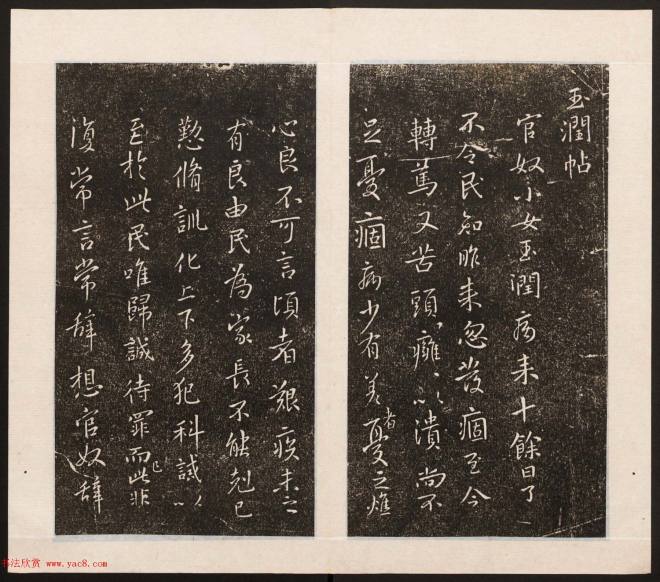 玉潤帖
官奴小女玉潤病來十餘日了
不令民知昨來忽發痼至今
轉篤又苦頭癰頭癰以潰尚不
足憂痼病少有差者憂之燋
心良不可言頃者艱疾未之
有良由民為家長不能剋己
懃脩訓化上下多犯科誡以
至於此民唯歸誠待罪而已此非
復常言常辭想官奴辭
书法欣赏 www.yac8.com